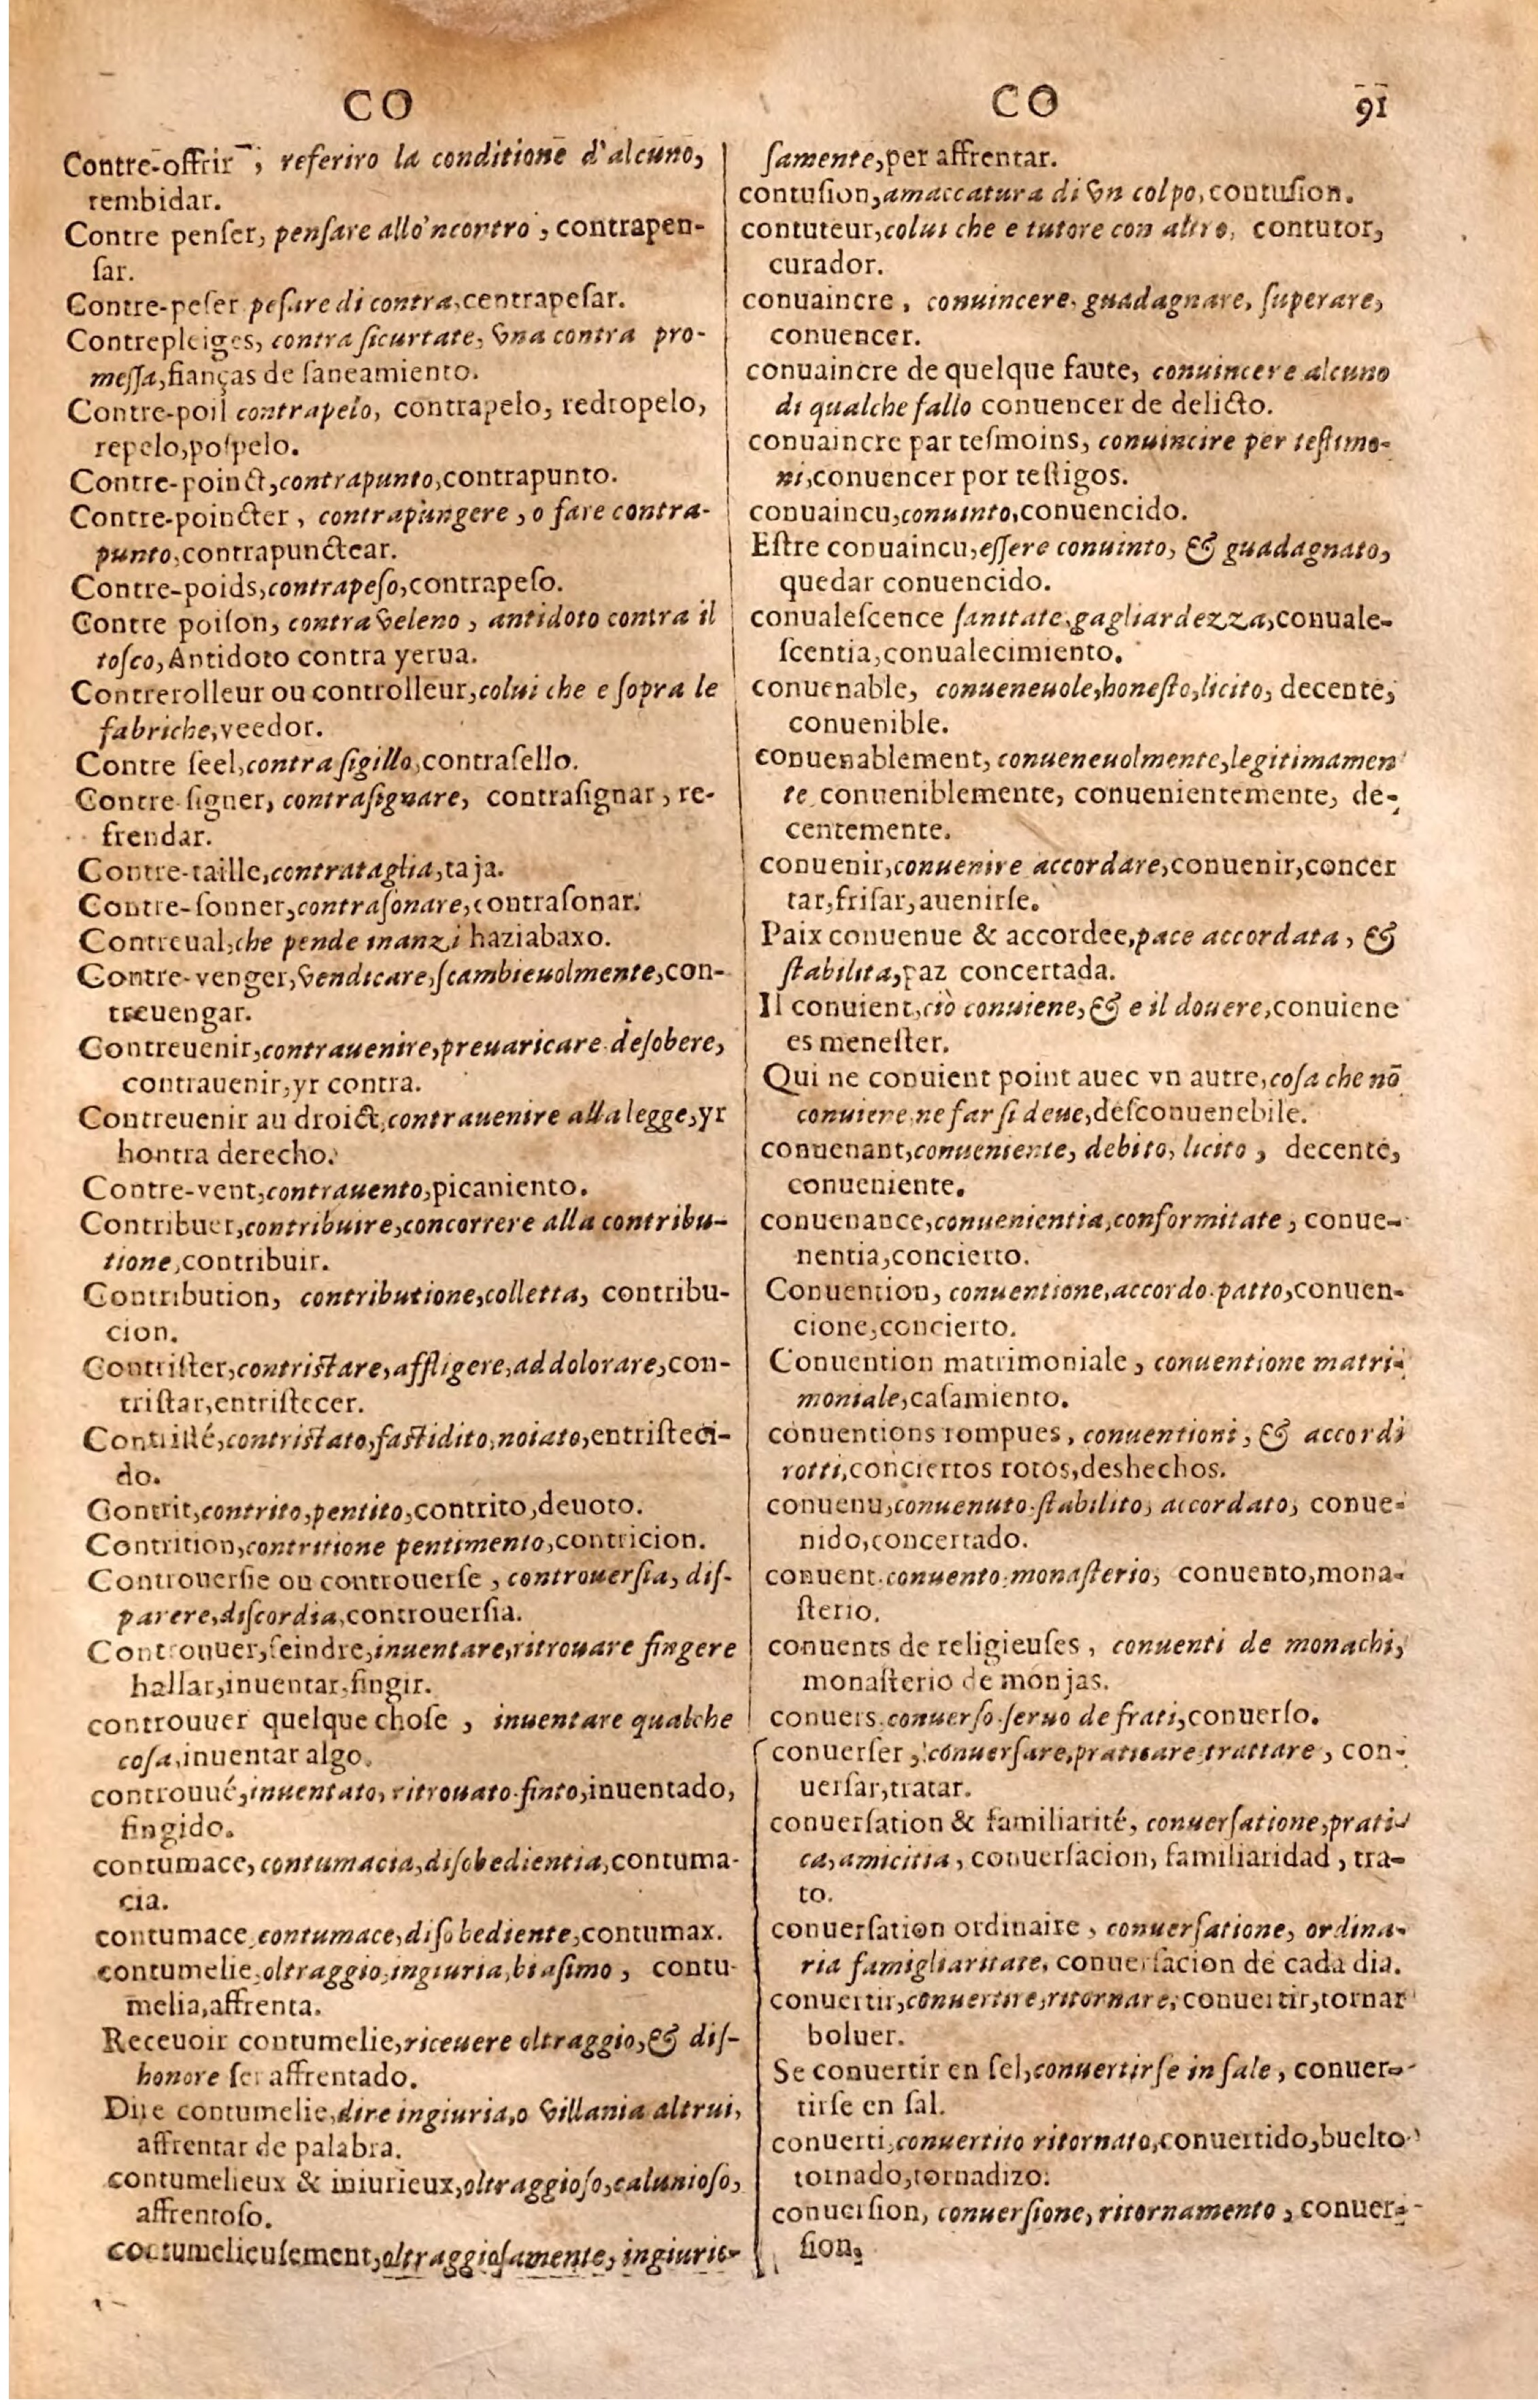 CO
Contre-offrir, referiro la conditione d'alcuno,
rembidar.
Contre penſer, penſare allo'ncontro, contrapen-
ſar.
Contre-peſer peſare di contra, centrapeſar.
Contrepleiges, contra ſicurtate, vna contra pro-
meſſa, fianças de ſaneamiento.
Contre-poil contrapelo, contrapelo, redropelo,
repelo, poſpelo.
Contre-poinct, contrapunto, contrapunto.
Contre-poincter, contrapungere, o fare contra-
punto, contrapunctear.
Contre-poids, contrapeſo, contrapeſo.
Contre poiſon, contra veleno, antidoto contra il
toſco, Antidoto contra yerua.
Contrerolleur ou controlleur, colui che e ſopra le
fabriche, veedor.
Contre ſeel, contra ſigillo, contraſello.
Contre-ſigner, contraſignare, contraſignar, re-
frendar.
Contre-taille, contrataglia, taja.
Contre-ſonner, contraſonare, contraſonar.
Contreual, che pende inanzi haziabaxo.
Contre-venger, vendicare, ſcambieuolmente, con-
treuengar.
Contreuenir, contrauenire, preuaricare deſobere,
contrauenir, yr contra.
Contreuenir au droict, contrauenire alla legge, yr
hontra derecho.
Contre-vent, contrauento, picaniento.
Contribuer, contribuire, concorrere alla contribu-
tione, contribuir.
Contribution, contributione, colletta, contribu-
cion.
Contriſter, contriſtare, affligere, addolorare, con-
triſtar, entriſtecer.
Contriſté, contriſtato, faſtidito, noiato, entriſteci-
do.
Contrit, contrito, pentito, contrito, deuoto.
Contrition, contritione pentimento, contricion.
Controuerſie ou controuerſe, controuerſia, diſ-
parere, diſcordia, controuerſia.
Controuuer, feindre, inuentare, ritrouare fingere
hallar, inuentar, fingir.
controuuer quelque choſe, inuentare qualche
coſa, inuentar algo.
controuué, inuentato, ritrouato finto, inuentado,
fingido.
contumace, contumacia, diſobedientia, contuma-
cia.
contumace, contumace, diſobediente, contumax.
contumelie, oltraggio, ingiuria, biaſimo, contu-
melia, affrenta.
Receuoir contumelie, riceuere oltraggio, & diſ-
honore ſer affrentado.
Dire contumelie, dire ingiuria, o villania altrui,
affrentar de palabra.
contumelieux & iniurieux, oltraggioſo, calunioſo,
affrentoſo.
cotumelieuſement, oltraggioſamente, ingiurio-
CO 91
ſamente, per affrentar.
contuſion, amaccatura di vn colpo, contuſion.
contuteur, colui che e tutore con altro, contutor,
curador.
conuaincre, conuincere, guadagnare, ſuperare,
conuencer.
conuaincre de quelque faute, conuincere alcuno
di qualche fallo conuencer de delicto.
conuaincre par teſmoins, conuincire per teſtimo-
ni, conuencer por teſtigos.
conuaincu, conuinto, conuencido.
Eſtre conuaincu, eſſere conuinto, & guadagnato,
quedar conuencido.
conualeſcence ſanitate, gagliardezza, conuale-
ſcentia, conualecimiento.
conuenable, conueneuole, honeſto, licito, decente,
conuenible.
conuenablement, conueneuolmente, legitimamen
te conueniblemente, conuenientemente, de-
centemente.
conuenir, conuenire accordare, conuenir, concer
tar, friſar, auenirſe.
Paix conuenue & accordee, pace accordata, &
ſtabilita, paz concertada.
Il conuient, ciò conuiene, & e il douere, conuiene
es meneſter.
Qui ne conuient point auec vn autre, coſa che nō
conuiene, ne far ſi deue, deſconuenebile.
conuenant, conueniente, debito, licito, decente,
conueniente.
conuenance, conuenientia, conformitate, conue-
nentia, concierto.
Conuention, conuentione, accordo patto, conuen-
cione, concierto.
Conuention matrimoniale, conuentione matri-
moniale, caſamiento.
conuentions rompues, conuentioni, & accordi
rotti, conciertos rotos, deshechos.
conuenu, conuenuto ſtabilito, accordato, conue-
nido, concertado.
conuent conuento monaſterio, conuento, mona-
ſterio.
conuents de religieuſes, conuenti de monachi,
monaſterio de monjas.
conuers conuerſo ſeruo de frati, conuerſo.
conuerſer, conuerſare, praticare trattare, con-
uerſar, tratar.
conuerſation & familiarité, conuerſatione, prati-
ca, amicitia, conuerſacion, familiaridad, tra-
to.
conuerſation ordinaire, conuerſatione, ordina-
ria famigliaritate, conuerſacion de cada dia.
conuertir, conuertire, ritornare, conuertir, tornar
boluer.
Se conuertir en ſel, conuertirſe in ſale, conuer-
tirſe en ſal.
conuerti, conuertito ritornato, conuertido, buelto
tornado, tornadizo.
conuerſion, conuerſione, ritornamento, conuer-
ſion,